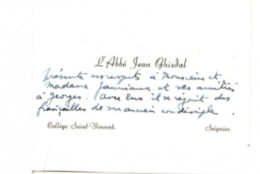 L'Abbé Jean Ghisdal
présente ses respects à Monsieur et
Madame Janniaux et ses amitiés
à Georges. Avec eux il se réjouit des
fiançailles de son ancien condisciple.
Collège Saint-Vincent. Soignies.